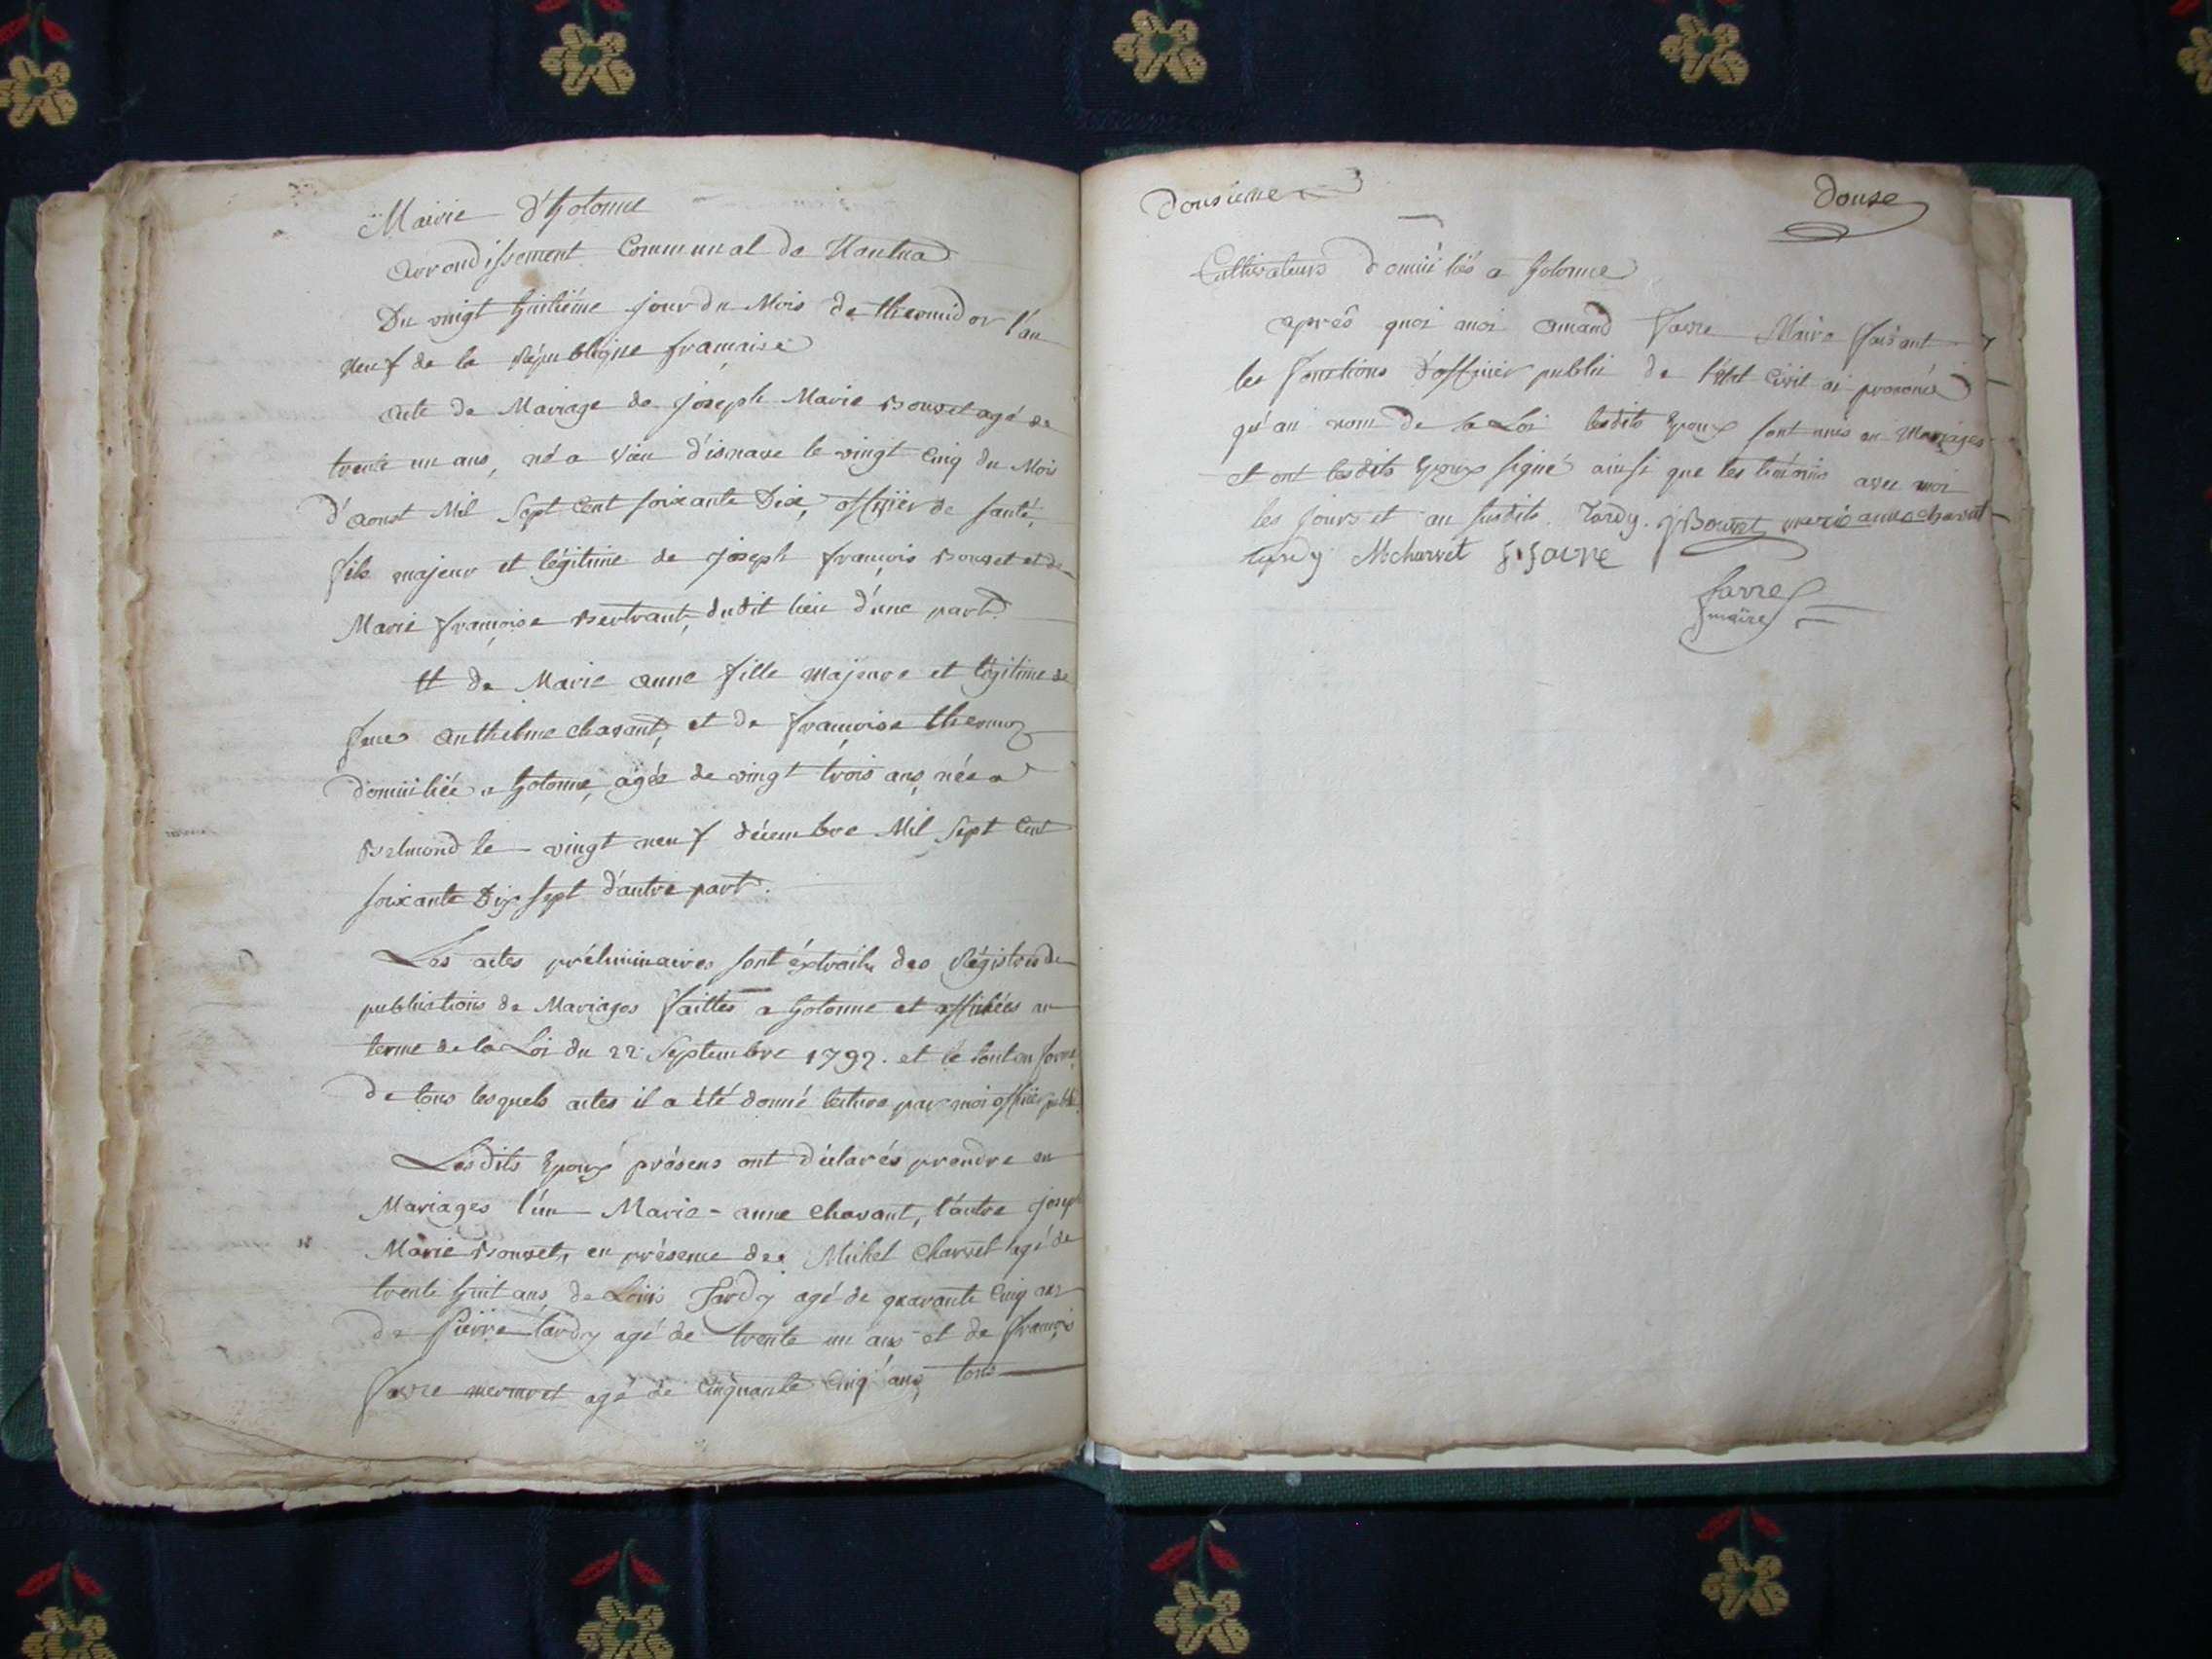 Mairie d'hotonne
arrondissement Communal de Nantua
Du vingt huitiéme jour du Mois de thermidor l'an
neuf de la République française
acte de Mariage de joseph Marie Bouvet agé de
trente un ans, né a vieu d'isnave le vingt Cinq du Mois
d'aoust Mil Sept Cent soixante Dix, officier de santé,
fils majeur et légitime de joseph françois Bouvet et de
Marie françoise Bertrant, dudit lieu d'une part
Et de Marie anne fille majeure et légitime de
feu anthelme chavant, et de françoise thermoz
domiciliée a hotonne, agée de vingt trois ans, née a
Belmond le vingt neuf décembre Mil Sept Cent
soixante Dix sept d'autre part.
Les actes préliminaires sont éxtraits des Régistres de
publications de Mariages faittes a hotonne et affichées au
terme de la Loi du 22 Septembre 1792. et le tout en forme,
de tous lesquels actes il a été donné lecture par moi officier public
Lesdits Epoux présens ont déclarés prendre en
Mariages l'un Marie-anne chavant, l'autre joseph
Marie Bouvet, en présence des Michel Charvet agé de
trente huit ans, de Louis Tardy agé de quarante Cinq ans
de Pierre tardy agé de trente un ans et de françois
favre mermet agé de Cinquante Cinq ans, tous
Dousieme douse
Cultivateurs domiciliés a hotonne
aprés quoi moi amand favre Maire faisant
les fonctions d'officier public de l'état Civil ai prononcé
qu'au nom de la Loi lesdits Epoux sont unis en Mariages
et ont lesdits Epoux signé ainsi que les témoins avec moi
les jours et an susdits. Tardy. j Bouvet marie anne chavant
tardy M charvet f. favre
favre
maire